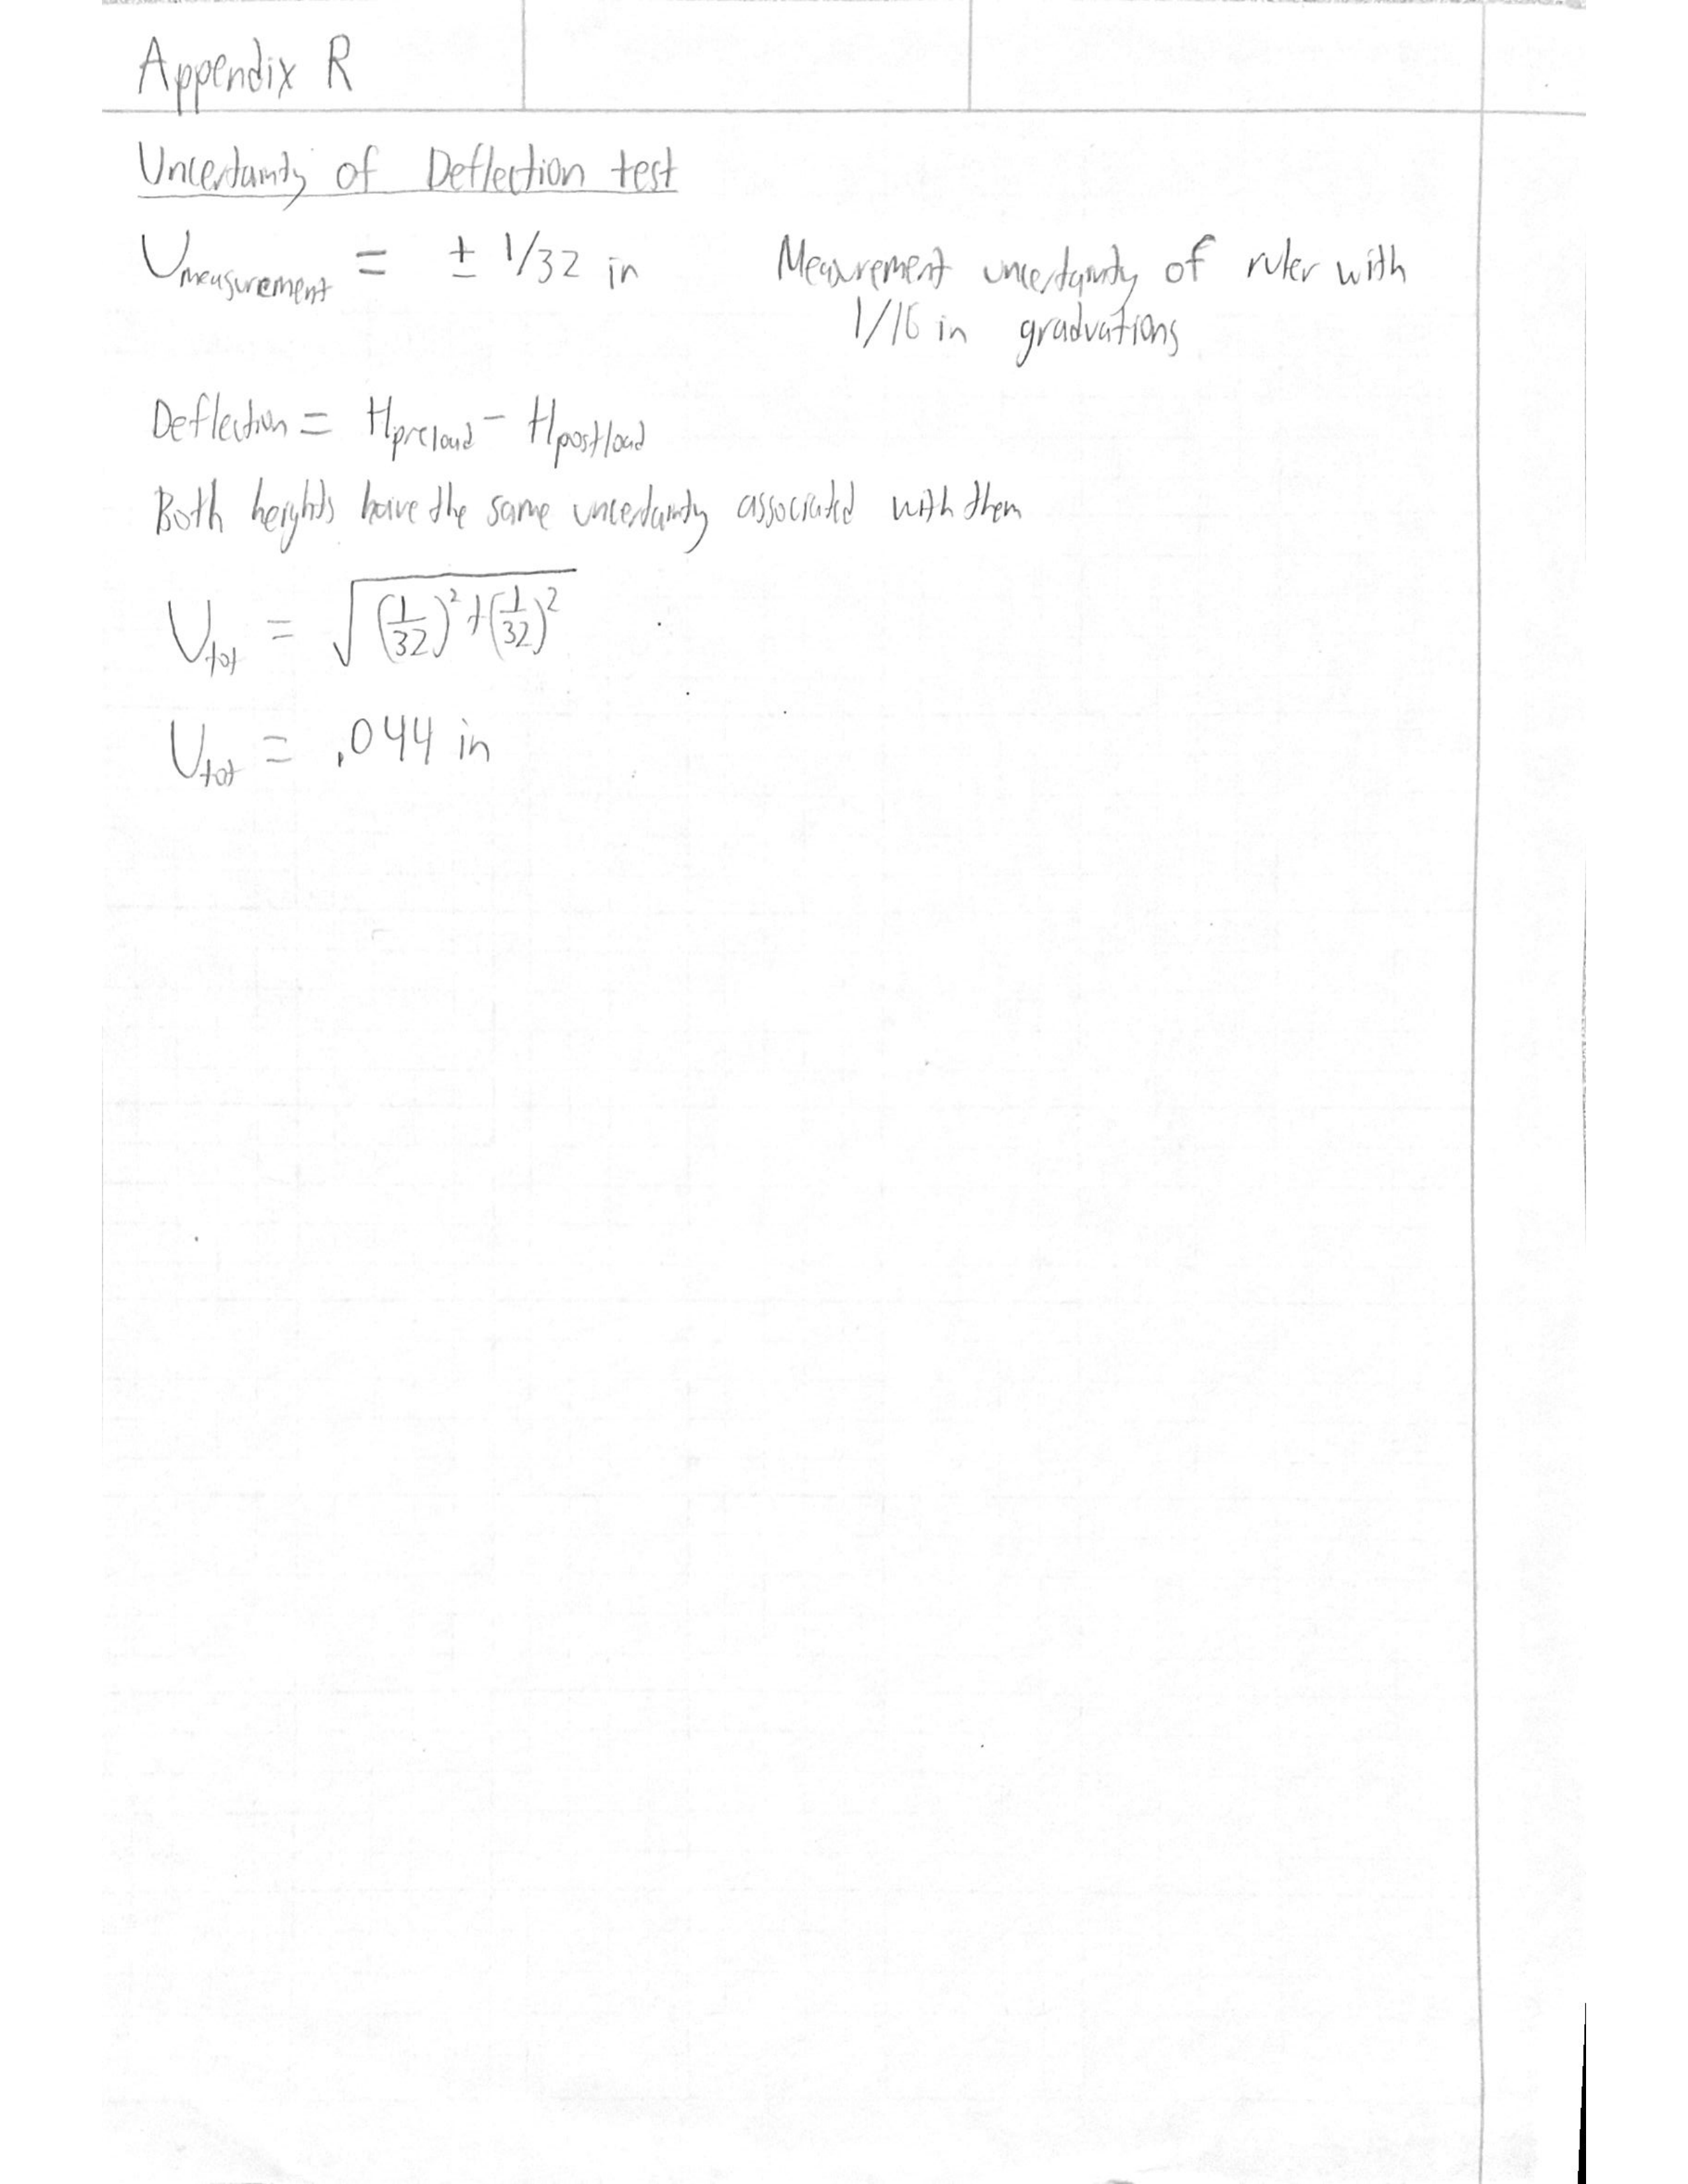 Appendix R
Uncertainty of Deflection test
Umeasurement = ± 1/32 in Measurement uncertainty of ruler with
1/16 in graduations
Deflection = Hpreload - Hpostload
Both heights have the same uncertainty associated with them
Utot = √((1/32)² + (1/32)²)
Utot = .044 in